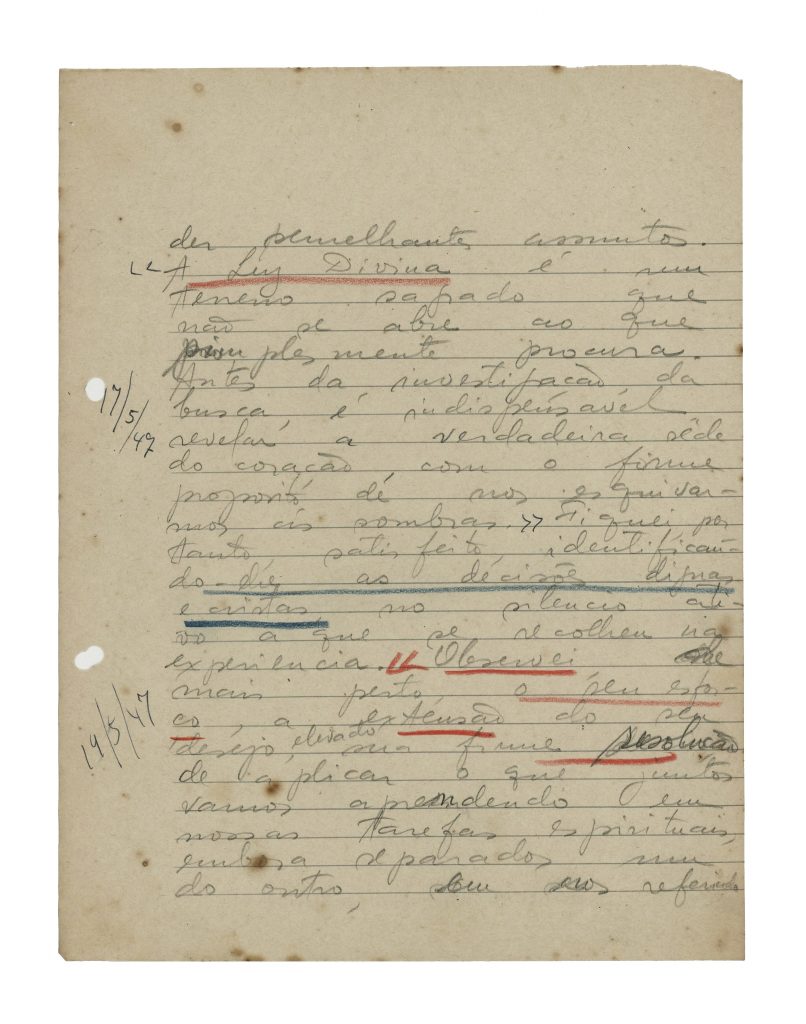 der semelhantes assuntos.
"A Luz Divina é um
terreno sagrado que
não se abre ao que
simplesmente procura.
Antes da investigação, da
17/5/47
busca, é indispensável
revelar a verdadeira sêde
do coração, com o firme
proposito de nos esquivar-
mos ás sombras." Fiquei por
tanto satisfeito, identifican-
do-lhe as decisões dignas
e cristãs, no silencio ati-
vo a que se recolheu na
experiencia. "Observei de
mais perto, o seu esfor-
19/5/47
ço, a extensão do seu
desejo elevado, sua firme resolução
de aplicar o que juntos
vamos aprendendo em
nossas tarefas espirituais,
embora separados um
do outro, em nos referindo